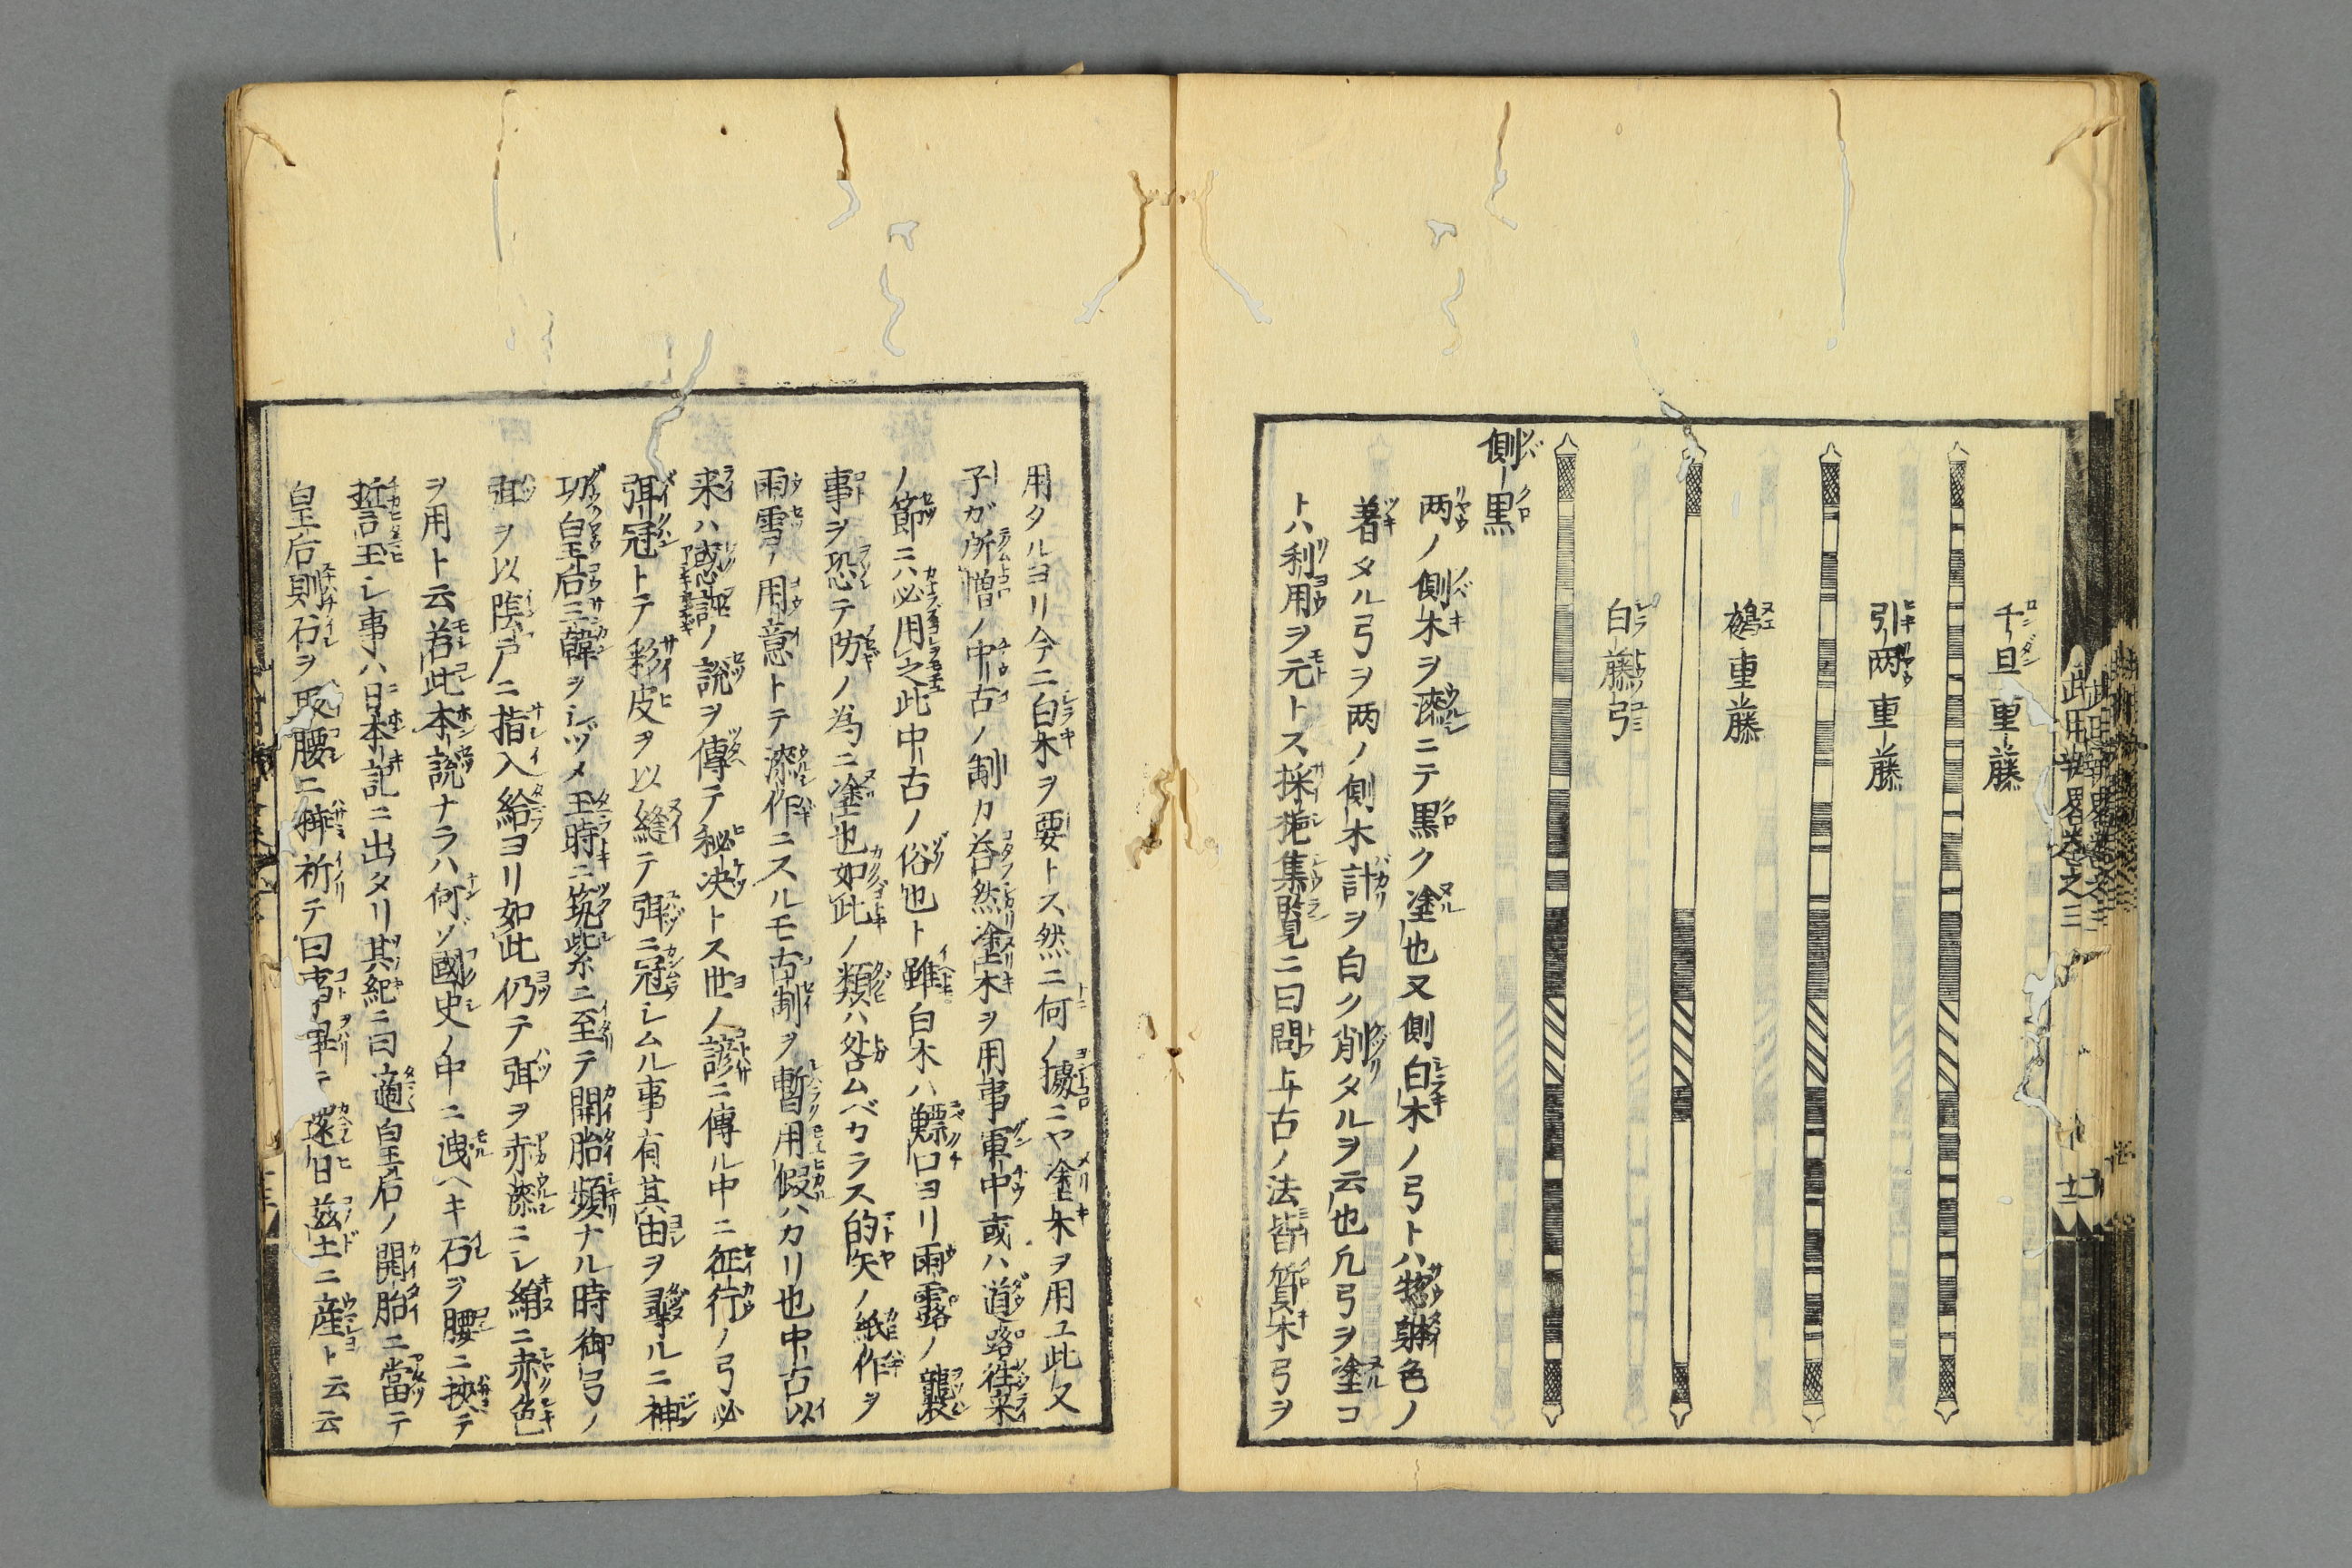 千旦重藤
引両重藤
鵺重藤
白藤弓
側黒
両ノ側木ヲ漆ニテ黒ク塗也又側白木ノ弓トハ惣躰色ノ
著タル弓ヲ両ノ側木計ヲ白ク削タルヲ云也凡弓ヲ塗コ
トハ利用ヲ元トス採摭集覧ニ曰問上古ノ法皆質木弓ヲ
用タルヨリ今ニ白木ヲ要トス然ニ何ノ據ニヤ塗木ヲ用ユ此又
子ガ所憎ノ中古ノ制カ荅然塗木ヲ用事軍中或ハ道路往来
ノ節ニハ必用之此中古ノ俗也ト雖白木ハ鰾口ヨリ雨露ノ襲
事ヲ恐テ防ノ為ニ塗也如此ノ類ハ咎ムベカラス的矢ノ紙作ヲ
雨雪ノ用意トテ漆作ニスルモ古制ヲ暫用假ハカリ也中古以
来ハ惑説ノ説ヲ傳テ秘决トス世ノ諺ニ傳ル中ニ征行ノ弓必
弭冠トテ彩皮ヲ以縫テ弭ニ冠シムル事有其由ヲ尋ルニ神
功皇后三韓ヲシヅメ玉時ニ筑紫ニ至テ開胎頻ナル時御弓ノ
弭ヲ以陰戸ニ指入給ヨリ如此仍テ弭ヲ赤漆ニシ繪ニ赤色
ヲ用ト云若此本説ナラハ何ゾ國史ノ中ニ洩ヘキ石ヲ腰ニ挾テ
誓玉シ事ハ日本記ニ出タリ其紀ニ曰適皇后ノ開胎ニ當テ
皇后則石ヲ取腰ニ挿祈テ曰事竟テ還日茲土ニ産ト云云
武用弁畧巻之三
十二